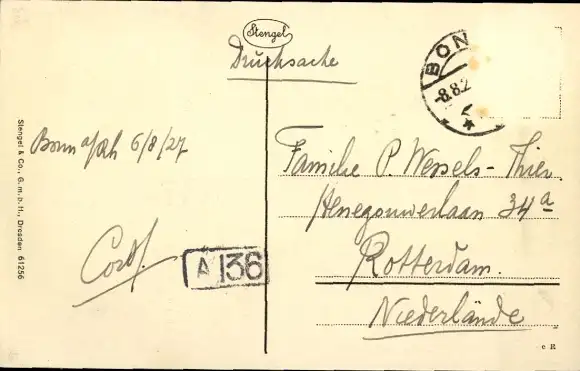 Stengel
Drucksache
BON
-8.8.2
Bonn a/Rh 6/8/27
Familie P. Wessels-Thier
Henegouwerlaan 34a
Rotterdam.
Niederlände
A 136
Stengel & Co., G.m.b.H., Dresden 61256
c R